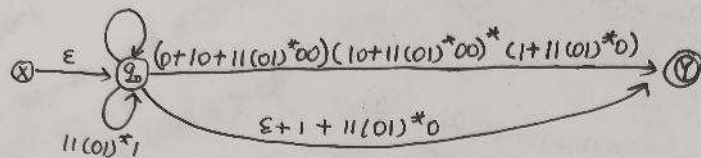 X ε q₀ (0+10+11(01)*00)(10+11(01)*00)* (1+11(01)*0) Y
ε+1+11(01)*0
11(01)*1